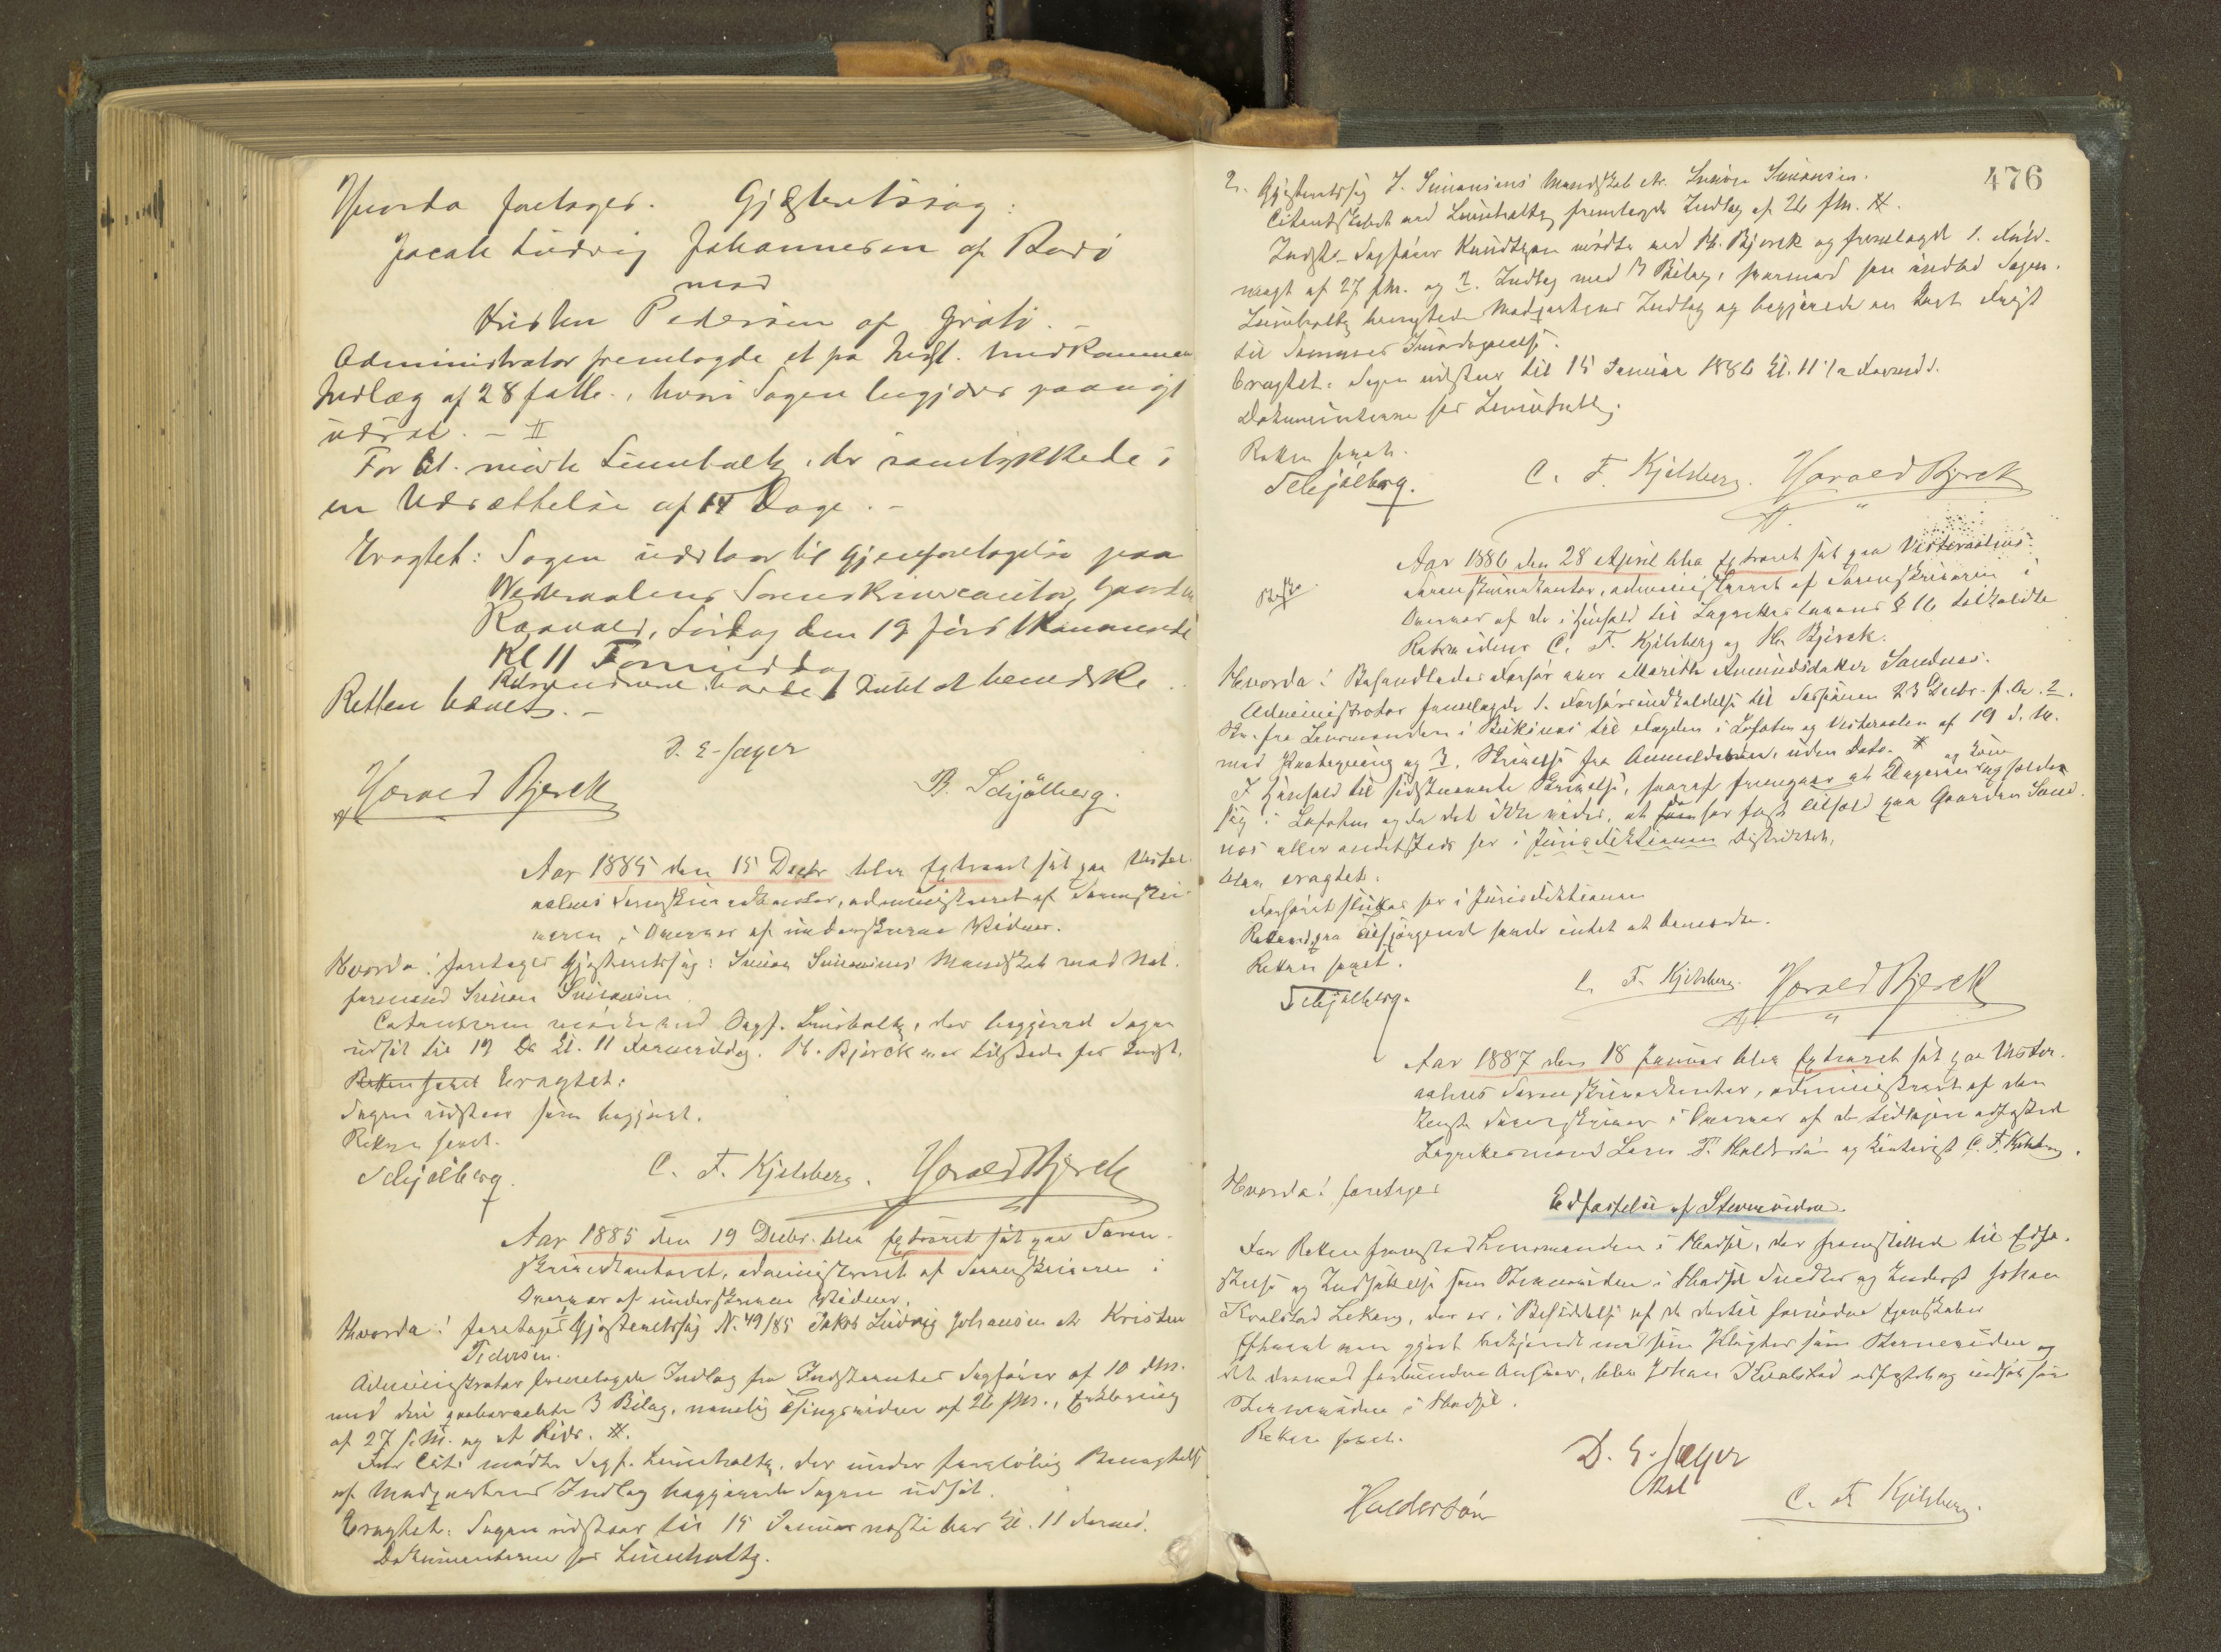 Hvorda foretoges. Gjæsteretssag:
Jacob Ludvig Johannesen af Barø
mod
Kristen Pedersen af Grøtø.
Administrator fremlagde et fra Indst. indkommen
Indlæg af 28 f. Mts., hvori Sagen begjæres paanyt
udsat. – #
For Cit. mødte Linnholtz, der samtykkede i
en Udsættelse af 14 Dage. –
Eragtet: Sagen udstaar til Gjenforetagelse paa
Vesteraalens Sorenskrivercontor, Gaarden
Lørdag den 19 førstkommende
Kl 11 Formiddag
Retsvidnerne havde Intet at bemærke.
Retten hævet. –
D. E. Jæger
Harald Bjerck
B. Schjølberg.
Aar 1885 den 15 Decbr. blev Extraret sat paa Vester-
aalens Sorenskriverkontor, administreret af Sorenskri-
veren, i Overvær af underskrevne Vidner.
Hvorda! foretages Gjæsteretssag: Simon Simonsens Mandskab mod Not-
formand Simon Simonsen.
Citanterne mødte ved Sagf. Linnholtz, der begjæred Sagen
udsat til 19 ds Kl. 11 Formiddag. H. Bjerck var tilstede for Indst.
Retten hævet Eragtet:
Sagen udstaar som begjært.
Retten hævet.
Schjølberg. C. F. Kjelsberg. Harald Bjerck
Aar 1885 den 19 Decbr. blev Extraret sat paa Soren-
skriverkontoret, administreret af Sorenskriveren i
Overvær af underskrevne Vidner.
Hvorda! foretages 1 Gjæsteretssag N. 49/85 Jakob Ludvig Johansen ctr Kristen
Pedersen.
Administrator fremlagde Indlæg fra Indstevntes Sagfører af 10 dM.
med deri paaberaabte 3 Bilag, nemlig Thingsvidne af 26 f.M., Erklæring
af 27 f.M. og et #.
For Cit. mødte Sagf. Linnholtz, der under foreløbig Benægtelse
af Modpartens Indlæg begjærede Sagen udsat.
Eragtet: Sagen udstaar til 15 Januar næste Aar Kl. 11 Formd.
Dokumenterne hos Linnholtz.
476
2. Gjæsteretssag S. Simonsens Mandskab ctr. Simon Simonsen.
Citantskabet ved Linnholtz fremlagde Indlæg af 26 f.M. #.
Indst. Sagfører Knudtzon mødte ved H. Bjerck og fremlagde 1. Fuld-
magt af 27 f.M. og 2. Indlæg med 3 Bilag, hvormed han indlod Sagen.
Linnholtz benægtede Modpartens Indlæg og begjærede en kort Frist
til Sammes Imødegaaelse.
Eragtet: Sagen udstaar til 15 Januar 1886 Kl. 11 1/2 Formd.
Dokumenterne hos Linnholtz.
Retten hævet.
Schjølberg. C. F. Kjelsberg. Harald Bjerck
Aar 1886 den 28 April blev Extraret sat paa Vesteraalens
Sorenskriverkontor, administreret af Sorenskriveren i
Overvær af de i Henhold til Lagrettes Lovens § 16 tilkaldte
Retsvidner C. F. Kjelsberg og Hr. Bjerck.
Hvorda! Behandledes Forhør over Marith Amundsdatter Sandnæs.
Administrator fremlagde 1. Forhørsindkaldelse til Sessionen 23 Decbr. f.A. 2.
Skr. fra Lensmanden i Buknæs til Fogden i Lofoten og Vesteraalen af 19 d.M.
med Paategning og 3. Skrivelse fra Anmelderen, uden Dato. #
I Henhold til sidstnævnte Skrivelse, hvoraf fremgaar at Klageren og Kone opholder
sig i Lofoten og da det ikke vides, at han har fast Tilhold paa Gaarden Sand-
næs eller andetsteds her i Jurisdiktionen Distriktet,
blev eragtet:
Forhøret sluttes her i Jurisdiktionen
Retten hævet.
Schjølberg. C. F. Kjelsberg. Harald Bjerck
Aar 1887 den 18 Januar blev Extraret sat paa Vester-
aalens Sorenskriverkontor, administreret af den
Overvær af de tidligere edfæstede
Lagrettesmænd Lars P. Haldorsøn og Kontorist C. F. Kjelsberg.
Hvorda! foretages
Edfæstelse af Stevnevidne.
For Retten fremstod Lensmanden i Hadsel, der fremstillede til Edfæ-
stelse og Indsættelse som Stevnevidne i Hadsel Snedker og Inderst Johan
Kvalstad Lekang, der er i Besiddelse af de dertil fornødne Egenskaber
Efterat være gjort bekjendt med sine Pligter som Stevnevidne og
det dermed forbundne Ansvar, blev Johan Kvalstad edfæstet og indsat som
Stevnevidne i Hadsel.
Retten hævet.
D. E. Jæger
Haldorsøn
C. F. Kjelsberg.